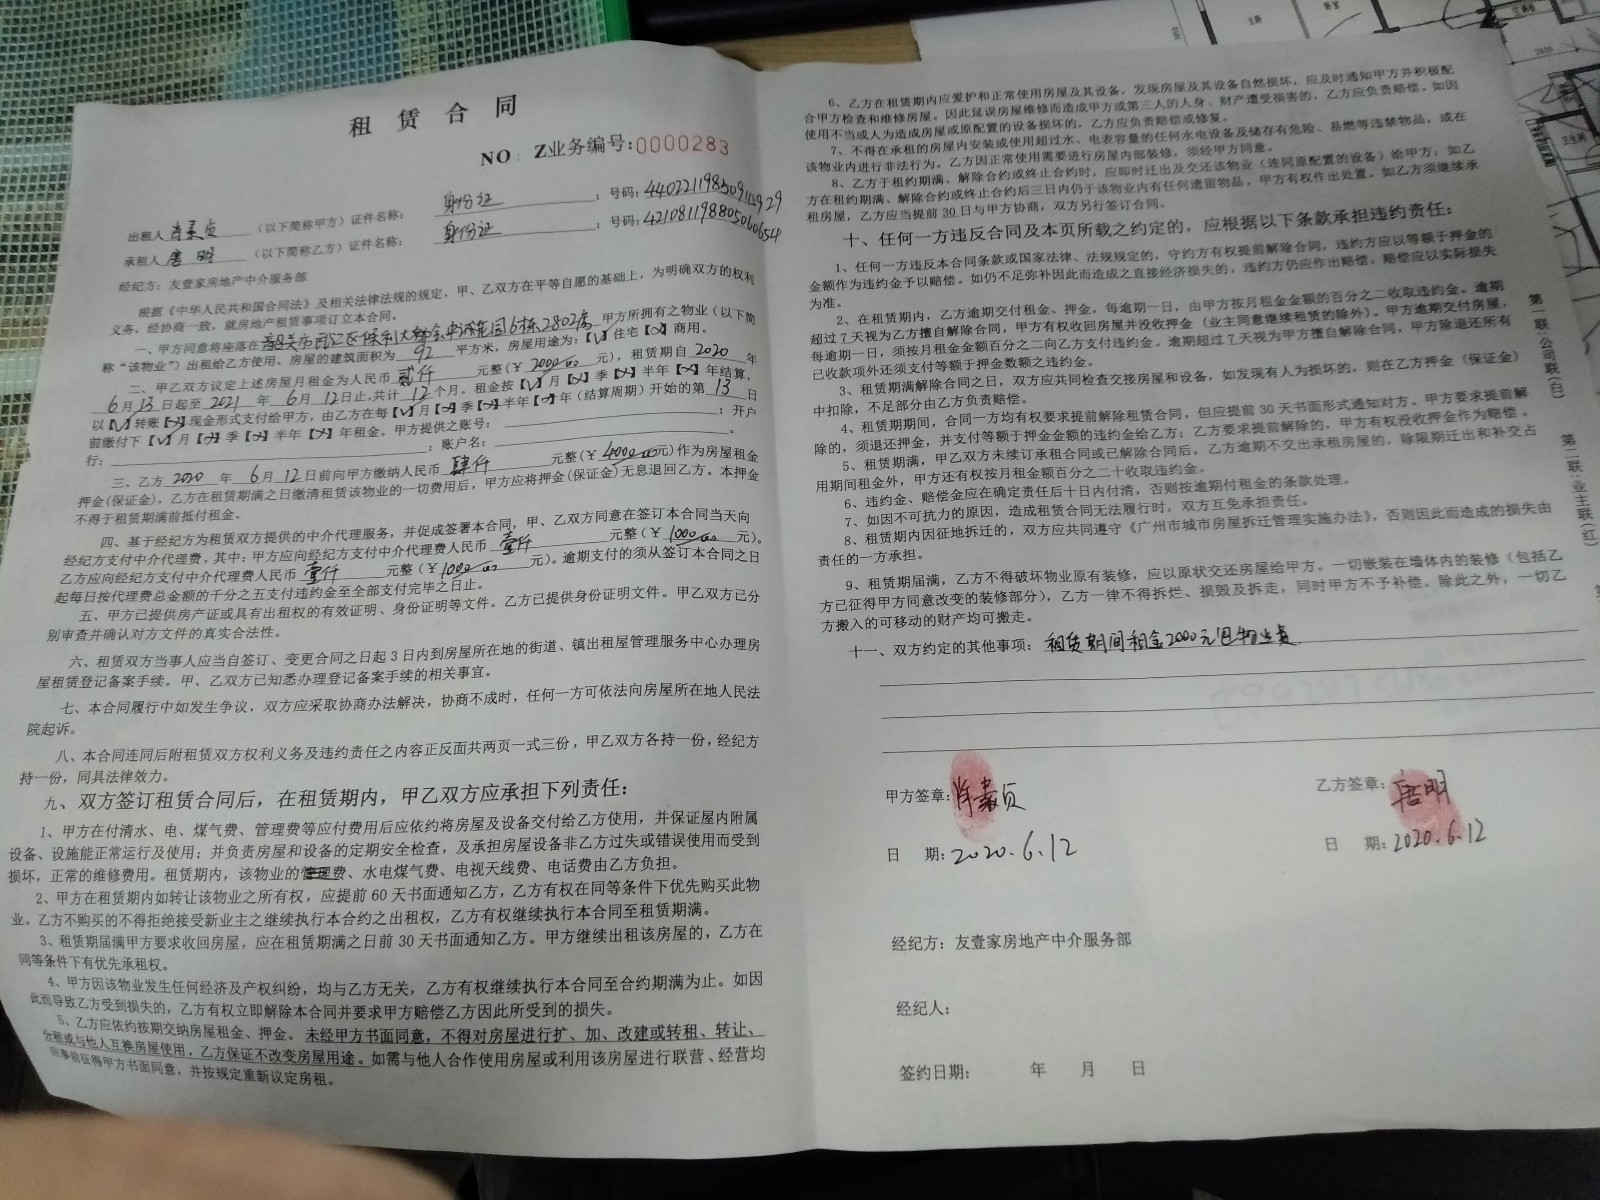 租赁合同
NO: Z业务编号:0000283
出租人 （以下简称甲方）证件名称: 身份证 ; 号码:
承租人 唐明 （以下简称乙方）证件名称: 身份证 ; 号码: 421081198805060654
经纪方: 友壹家房地产中介服务部
根据《中华人民共和国合同法》及相关法律法规的规定，甲、乙双方在平等自愿的基础上，为明确双方的权利
义务，经协商一致，就房地产租赁事项订立本合同。
一、甲方同意将座落在 6栋2802房 甲方所拥有之物业（以下简
称“该物业”）出租给乙方使用。房屋的建筑面积为 92 平方米，房屋用途为:【√】住宅【×】商用。
二、甲乙双方议定上述房屋月租金为人民币 贰仟 元整(￥2000.00 元)，租赁期自 2020 年
6月13日起至 2021 年 6月12日止,共计12个月。租金按【√】月【×】季【×】半年【×】年结算，
以【√】转账【×】现金形式支付给甲方，由乙方在每【√】月【×】季【×】半年【×】年（结算周期）开始的第 13 日
前缴付下【√】月【×】季【×】半年【×】年租金。甲方提供之账号: ; 开户
行: ; 账户名: 。
三、乙方 2020 年 6月12日前向甲方缴纳人民币 肆仟 元整(￥4000.00元)作为房屋租金
押金(保证金)，乙方在租赁期满之日缴清租赁该物业的一切费用后，甲方应将押金(保证金)无息退回乙方。本押金
不得于租赁期满前抵付租金。
四、基于经纪方为租赁双方提供的中介代理服务，并促成签署本合同，甲、乙双方同意在签订本合同当天向
经纪方支付中介代理费，其中: 甲方应向经纪方支付中介代理费人民币 壹仟 元整(￥1000.00 元)。
乙方应向经纪方支付中介代理费人民币 壹仟 元整(￥1000.00 元)。逾期支付的须从签订本合同之日
起每日按代理费总金额的千分之五支付违约金至全部支付完毕之日止。
五、甲方已提供房产证或具有出租权的有效证明、身份证明等文件。乙方已提供身份证明文件。甲乙双方已分
别审查并确认对方文件的真实合法性。
六、租赁双方当事人应当自签订、变更合同之日起3日内到房屋所在地的街道、镇出租屋管理服务中心办理房
屋租赁登记备案手续。甲、乙双方已知悉办理登记备案手续的相关事宜。
七、本合同履行中如发生争议，双方应采取协商办法解决，协商不成时，任何一方可依法向房屋所在地人民法
院起诉。
八、本合同连同后附租赁双方权利义务及违约责任之内容正反面共两页一式三份，甲乙双方各持一份，经纪方
持一份，同具法律效力。
九、双方签订租赁合同后，在租赁期内，甲乙双方应承担下列责任:
1、甲方在付清水、电、煤气费、管理费等应付费用后应依约将房屋及设备交付给乙方使用，并保证屋内附属
设备、设施能正常运行及使用；并负责房屋和设备的定期安全检查，及承担房屋设备非乙方过失或错误使用而受到
损坏，正常的维修费用。租赁期内，该物业的管理费、水电煤气费、电视天线费、电话费由乙方负担。
2、甲方在租赁期内如转让该物业之所有权，应提前60天书面通知乙方，乙方有权在同等条件下优先购买此物
业。乙方不购买的不得拒绝接受新业主之继续执行本合约之出租权，乙方有权继续执行本合同至租赁期满。
3、租赁期届满甲方要求收回房屋，应在租赁期满之日前30天书面通知乙方。甲方继续出租该房屋的，乙方在
同等条件下有优先承租权。
4、甲方因该物业发生任何经济及产权纠纷，均与乙方无关，乙方有权继续执行本合同至合约期满为止。如因
此而导致乙方受到损失的，乙方有权立即解除本合同并要求甲方赔偿乙方因此所受到的损失。
5、乙方应依约按期交纳房屋租金、押金。未经甲方书面同意，不得对房屋进行扩、加、改建或转租、转让、
分租或与他人互换房屋使用，乙方保证不改变房屋用途。如需与他人合作使用房屋或利用该房屋进行联营、经营均
应事前征得甲方书面同意，并按规定重新议定房租。
6、乙方在租赁期内应爱护和正常使用房屋及其设备，发现房屋及其设备自然损坏，应及时通知甲方并积极配
合甲方检查和维修房屋。因此延误房屋维修而造成甲方或第三人的人身、财产遭受损害的，乙方应负责赔偿。如因
使用不当或人为造成房屋或原配置的设备损坏的，乙方应负责赔偿或修复。
7、不得在承租的房屋内安装或使用超过水、电表容量的任何水电设备及储存有危险、易燃等违禁物品，或在
该物业内进行非法行为。乙方因正常使用需要进行房屋内部装修，须经甲方同意。
8、乙方于租约期满、解除合约或终止合约时，应即时迁出及交还该物业（连同原配置的设备）给甲方；如乙
方在租约期满、解除合约或终止合约后三日内仍于该物业内有任何遗留物品，甲方有权作出处置。如乙方须继续承
租房屋，乙方应当提前30日与甲方协商，双方另行签订合同。
十、任何一方违反合同及本页所载之约定的，应根据以下条款承担违约责任:
1、任何一方违反本合同条款或国家法律、法规规定的，守约方有权提前解除合同，违约方应以等额于押金的
金额作为违约金予以赔偿。如仍不足弥补因此而造成之直接经济损失的，违约方仍应作出赔偿，赔偿应以实际损失
为准。
2、在租赁期内，乙方逾期交付租金、押金，每逾期一日，由甲方按月租金金额的百分之二收取违约金。逾期
超过7天视为乙方擅自解除合同，甲方有权收回房屋并没收押金（业主同意继续租赁的除外）。甲方逾期交付房屋，
每逾期一日，须按月租金金额百分之二向乙方支付违约金。逾期超过7天视为甲方擅自解除合同，甲方除退还所有
已收款项外还须支付等额于押金数额之违约金。
3、租赁期满解除合同之日，双方应共同检查交接房屋和设备，如发现有人为损坏的，则在乙方押金（保证金）
中扣除，不足部分由乙方负责赔偿。
4、租赁期期间，合同一方均有权要求提前解除租赁合同，但应提前30天书面形式通知对方。甲方要求提前解
除的，须退还押金，并支付等额于押金金额的违约金给乙方；乙方要求提前解除的，甲方有权没收押金作为赔偿。
5、租赁期满，甲乙双方未续订承租合同或已解除合同后，乙方逾期不交出承租房屋的，除限期迁出和补交占
用期间租金外，甲方还有权按月租金额百分之二十收取违约金。
6、违约金、赔偿金应在确定责任后十日内付清，否则按逾期付租金的条款处理。
7、如因不可抗力的原因，造成租赁合同无法履行时，双方互免承担责任。
8、租赁期内因征地拆迁的，双方应共同遵守《广州市城市房屋拆迁管理实施办法》，否则因此而造成的损失由
责任的一方承担。
9、租赁期届满，乙方不得破坏物业原有装修，应以原状交还房屋给甲方。一切嵌装在墙体内的装修（包括乙
方已征得甲方同意改变的装修部分），乙方一律不得拆烂、损毁及拆走，同时甲方不予补偿。除此之外，一切乙
方搬入的可移动的财产均可搬走。
十一、双方约定的其他事项: 租赁期间租金2000元包物业费
甲方签章:
日 期: 2020.6.12
乙方签章: 唐明
日 期: 2020.6.12
经纪方: 友壹家房地产中介服务部
经纪人:
签约日期: 年 月 日
第一联:公司联(白)
第二联:业主联(红)